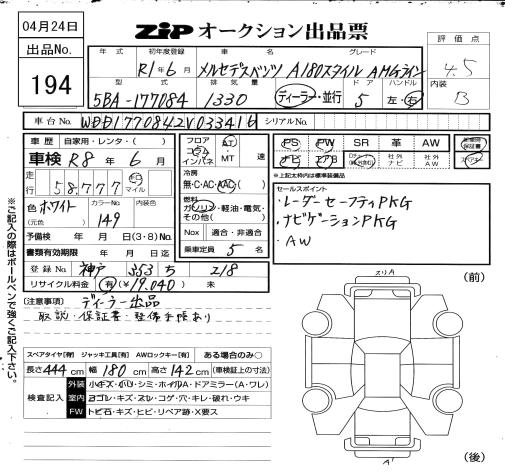 04月24日
ZiP オークション出品票
出品No.
194
年式 初年度登録 車名 グレード
R1年6月 メルセデスベンツ A180スタイル AMGライン
型式 排気量 ドア ハンドル
5BA-177084 1330 ディーラー・並行 5 左・右
評価点
4.5
内装
B
車台No. WDD1770842V033416 シリアルNo.
車歴 自家用・レンタ・( )
車検 R8年6月
走行 58,777 マイル
色 ホワイト カラーNo. 149 内装色
(元色)
予備検 年 月 日(3・8)No.
書類有効期限 年 月 日迄
登録No. 神戸 353 ち 218
リサイクル料金 有(¥19,040) 未
フロア コラム インパネ AT MT 速
冷房
無・C・AC・AAC・( )
燃料
ガソリン・軽油・電気・
その他( )
Nox 適合・非適合
乗車定員 5 名
PS PW SR 革 AW
ナビ エアB 社外ナビ 社外AW
新車時保証書
スペアキー
*上記太枠内は標準装備品
セールスポイント
・レーダーセーフティPKG
・ナビゲーションPKG
・AW
(注意事項) ディーラー出品
取説・保証書・整備手帳あり
スペアタイヤ[有] ジャッキ工具[有] AWロックキー[有] ある場合のみ○
長さ444cm 幅180cm 高さ142cm (車検証上の寸法)
検査記入
外装 小キズ・凹リ・シミ・ホイルA・ドアミラー(A・ワレ)
室内 ヨゴレ・キズ・スレ・コゲ・穴・キレ・破れ・ウキ
FW トビ石・キズ・ヒビ・リペア跡・X要ス
スリA
(前)
A'
(後)
※ご記入の際はボールペンで強くご記入下さい。